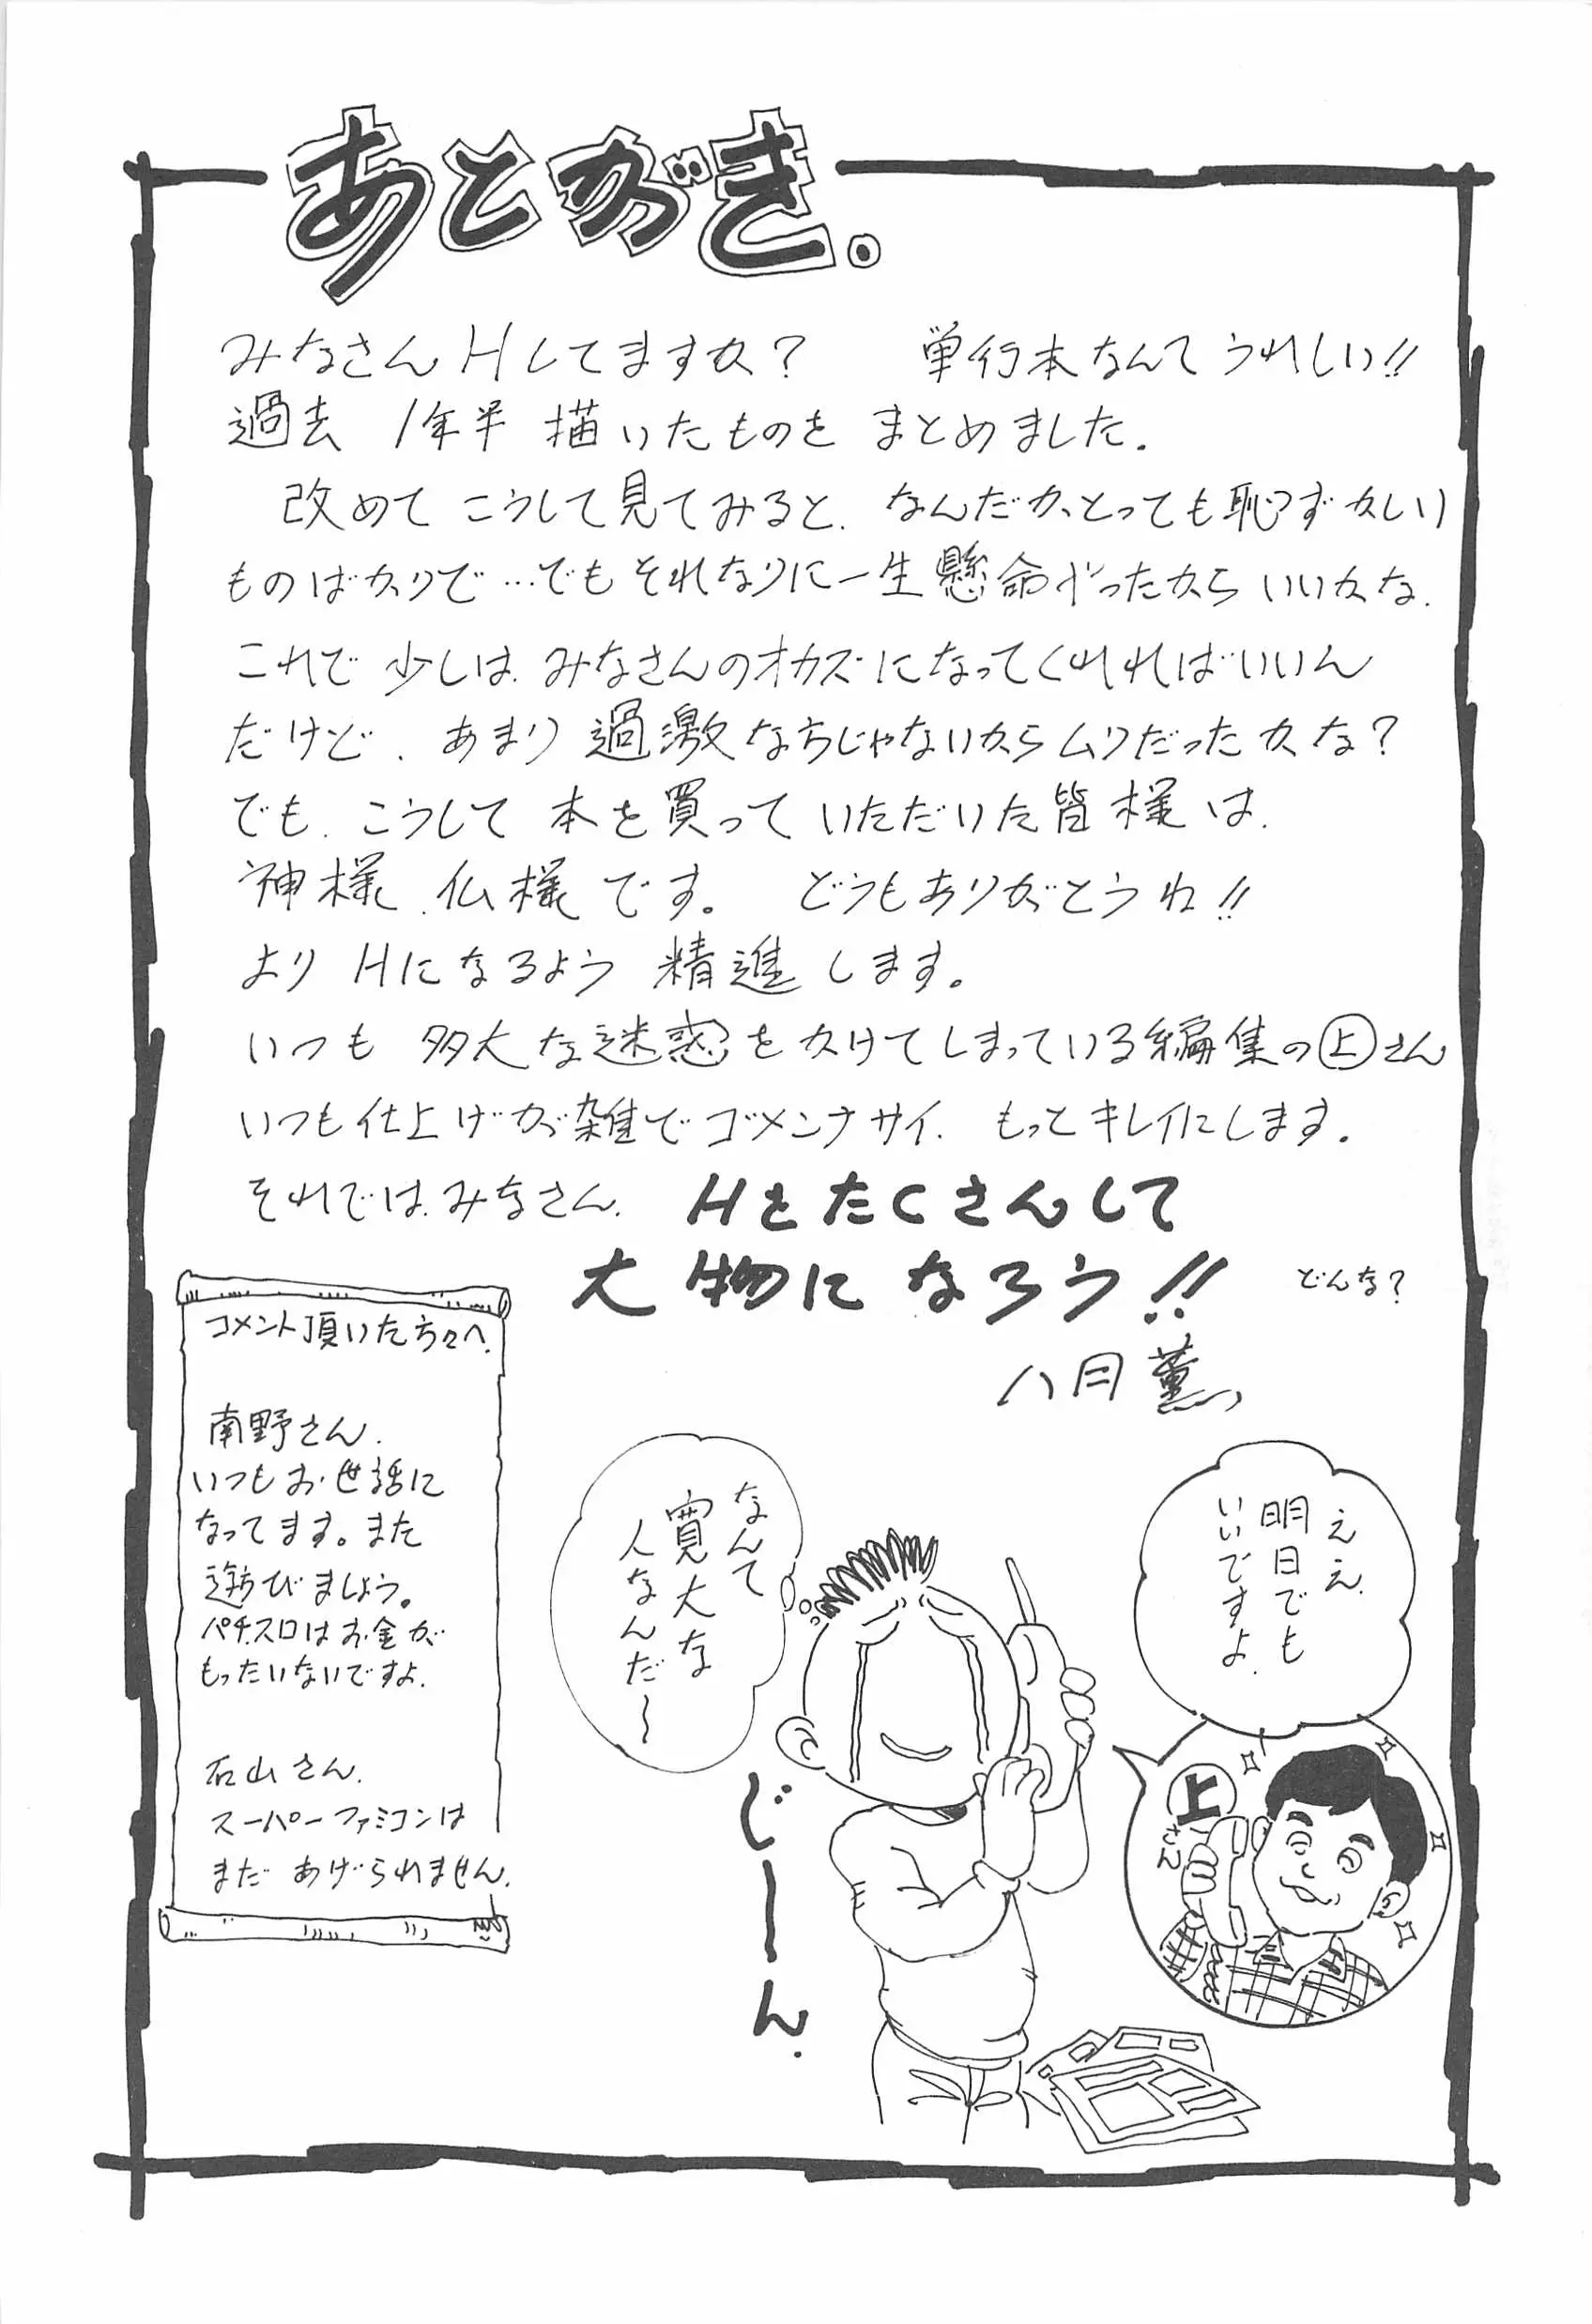 あとがき.
みなさんHしてますか? 単行本なんてうれしい!!
過去 1年半 描いたものを まとめました.
改めて こうして見てみると. なんだか、とっても恥ずかしい
ものばかりで…でも それなりに一生懸命やったからいいかな.
これで 少しは. みなさんのオカズになってくれればいいん
だけど. あまり 過激な方じゃないからムリだったかな?
でも. こうして 本を買って いただいた皆様は.
神様. 仏様です。 どうもありがとうね!!
より Hになるよう 精進します。
いつも 多大な迷惑をかけてしまっている編集の㊤さん
いつも仕上げが雑でゴメンナサイ. もっとキレイにします。
それでは. みなさん. Hをたくさんして
大物になろう!! どんな?
八月薫
コメント頂いた方々へ.
南野さん.
いつもお世話に
なってます。また
遊びましょう。
パチスロはお金が
もったいないですよ.
石山さん.
スーパーファミコンは
まだ あげられません.
ええ.
明日でも
いいですよ.
なんて
寛大な
人なんだ～
じーん.
㊤さん